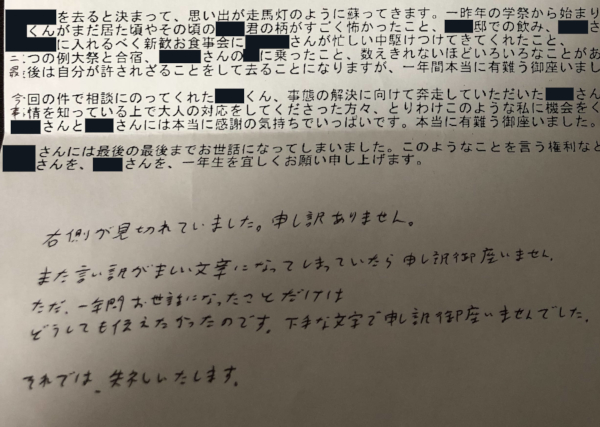 を去ると決まって、思い出が走馬灯のように蘇ってきます。一昨年の学祭から始まり
くんがまだ居た頃やその頃の君の柄がすごく怖かったこと、邸での飲み、さ
に入れるべく新歓お食事会にさんが忙しい中駆けつけてきてくれたこと、
二つの例大祭と合宿、さんのに乗ったこと、数えきれないほどいろいろなことがあ
最後は自分が許されざることをして去ることになりますが、一年間本当に有難う御座いまし
今回の件で相談にのってくれたくん、事態の解決に向けて奔走していただいたさん
事情を知っている上で大人の対応をしてくださった方々、とりわけこのような私に機会をく
さんとさんには本当に感謝の気持ちでいっぱいです。本当に有難う御座いました。
さんには最後の最後までお世話になってしまいました。このようなことを言う権利など
さんを、さんを、一年生を宜しくお願い申し上げます。
右側が見切れていました。申し訳ありません。
また言い訳がましい文章になってしまっていたら申し訳御座いません。
ただ、一年間お世話になったことだけは
どうしても伝えたかったのです。下手な文字で申し訳御座いませんでした。
それでは、失礼いたします。